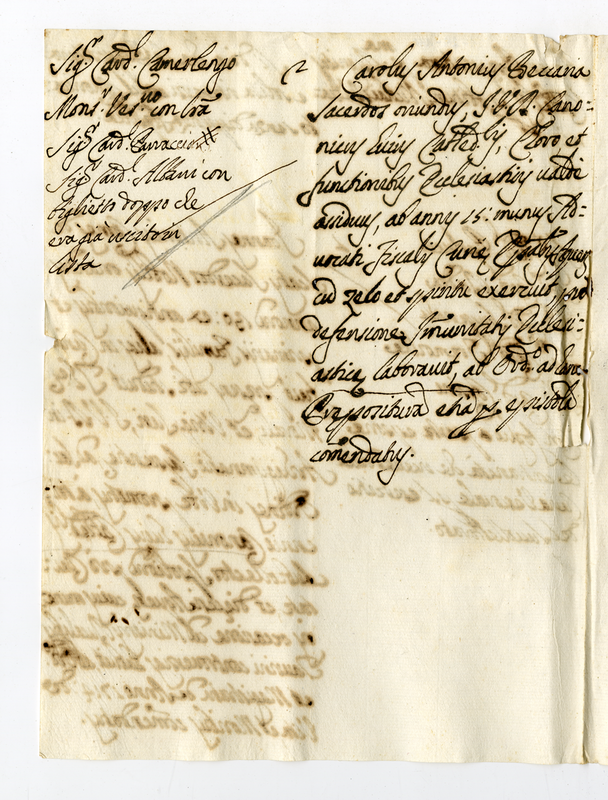 Sig.r Card. Camerlengo
Mons.r Ves.no con lra
Sig.r Card.
Sig.r Card. Albani con
biglietto doppo che
era già uscito in
lista
2
Carolus Antonius Beccaria
Sacerdos oriundus, J.V.D. Cano=
nicus huius Cathed.lis, Choro et
functionibus Ecclesiasticis valde
assiduus, ab annis 15: munus Ad=
vocati Fiscalis Curiæ
ad zelo et spiritu exercuit, pro
defensione Immunitatis Ecclesi=
asticæ laboravit, ab Ord.o ad hanc
Præposituram etiã p. epistola
comendatus.